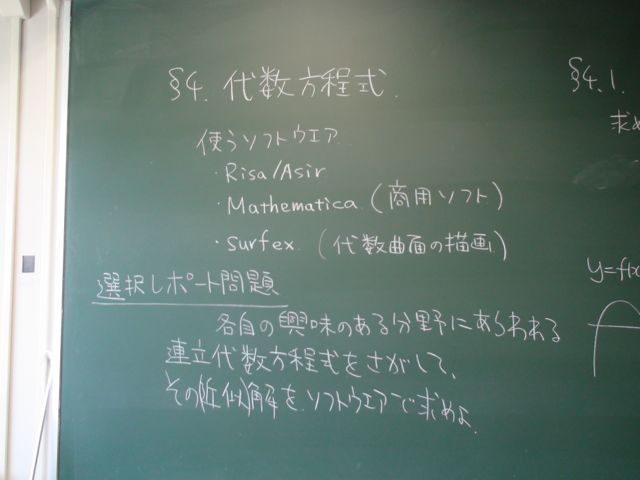 §4. 代数方程式.
使うソフトウエア
・Risa/Asir
・Mathematica. (商用ソフト)
・surfex. (代数曲面の描画)
選択レポート問題
各自の興味のある分野にあらわれる
連立代数方程式をさがして、
その(近似)解を.ソフトウエアで求めよ.
§4.1.
求め
y=f(x